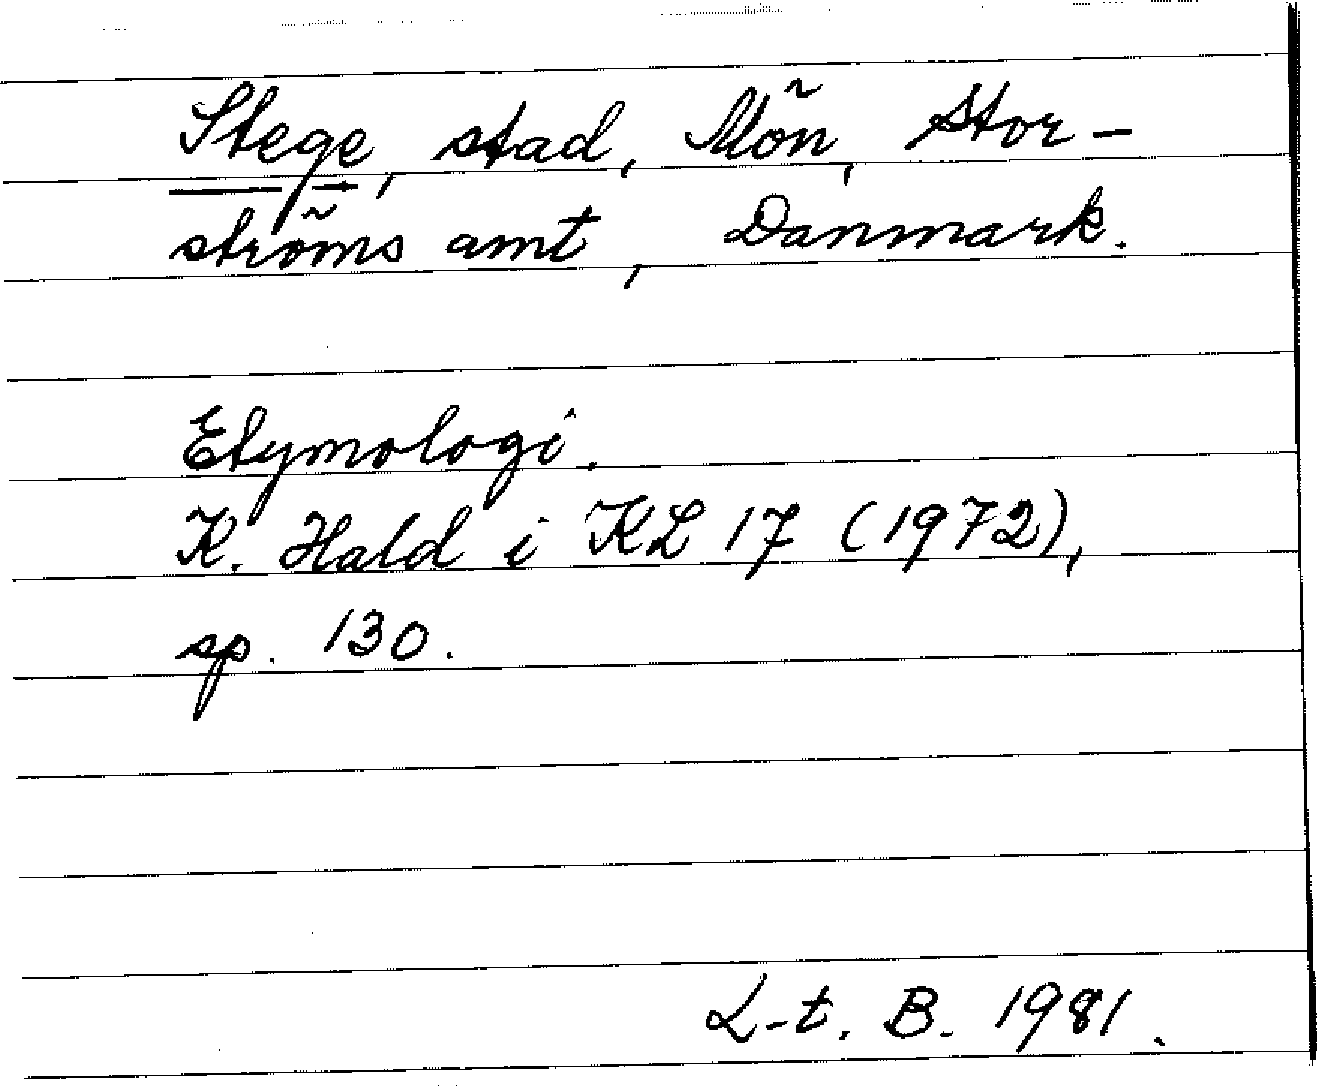 Stege, stad, Mön, Stor-
ströms amt, Danmark.
Etymologi.
K. Hald i KL 17 (1972),
sp. 130.
L-t. B. 1981.